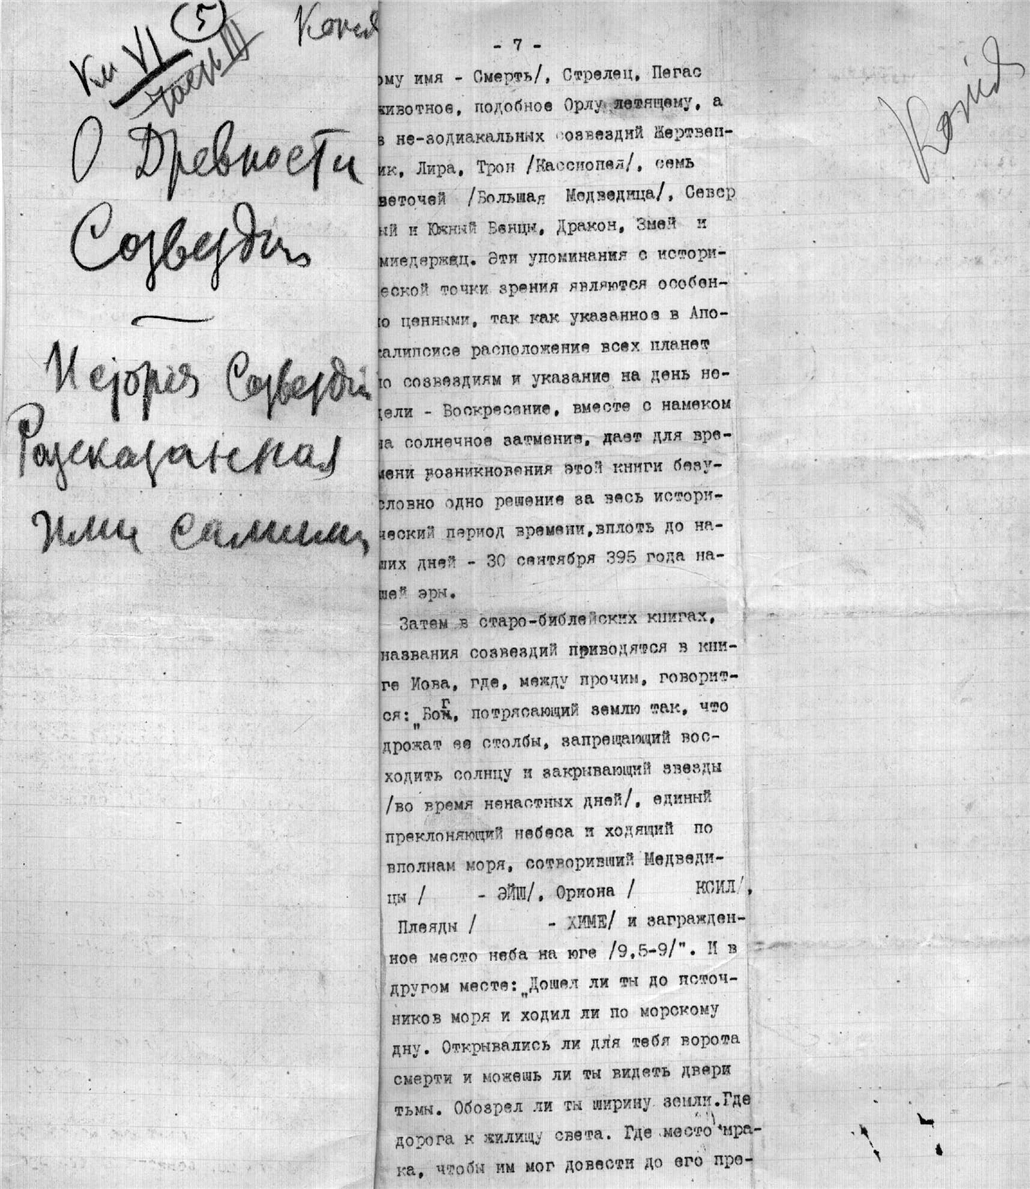 Кн VI (5)
Часть III
Копия
О Древности
Созвездий
История Созвездий
Рассказанная
ими самими
Копія
- 7 -
ому имя - Смерть/, Стрелец, Пегас
животное, подобное Орлу летящему, а
в не-зодиакальных созвездий Жертвен-
ик, Лира, Трон /Кассиопея/, семь
веточей /Большая Медведица/, Север
ый и Южный Венцы, Дракон, Змей и
миедержец. Эти упоминания с истори-
еской точки зрения являются особен-
о ценными, так как указанное в Апо-
калипсисе расположение всех планет
по созвездиям и указание на день не-
дели - Воскресение, вместе с намеком
на солнечное затмение, дает для вре-
мени возникновения этой книги безу-
словно одно решение за весь истори-
ческий период времени,вплоть до на-
ших дней - 30 сентября 395 года на-
шей эры.
Затем в старо-библейских книгах,
названия созвездий приводятся в кни-
ге Иова, где, между прочим, говорит-
ся: „Бог, потрясающий землю так, что
дрожат ее столбы, запрещающий вос-
ходить солнцу и закрывающий звезды
/во время ненастных дней/, единый
преклоняющий небеса и ходящий по
вполнам моря, сотворивший Медведи-
цы / - ЭЙШ/, Ориона / КСИЛ/,
Плеяды / - ХИМЕ/ и загражден-
ное место неба на юге /9,5-9/". И в
другом месте: „Дошел ли ты до источ-
ников моря и ходил ли по морскому
дну. Открывались ли для тебя ворота
смерти и можешь ли ты видеть двери
тьмы. Обозрел ли ты ширину земли.Где
дорога к жилищу света. Где место мра-
ка, чтобы им мог довести до его пре-